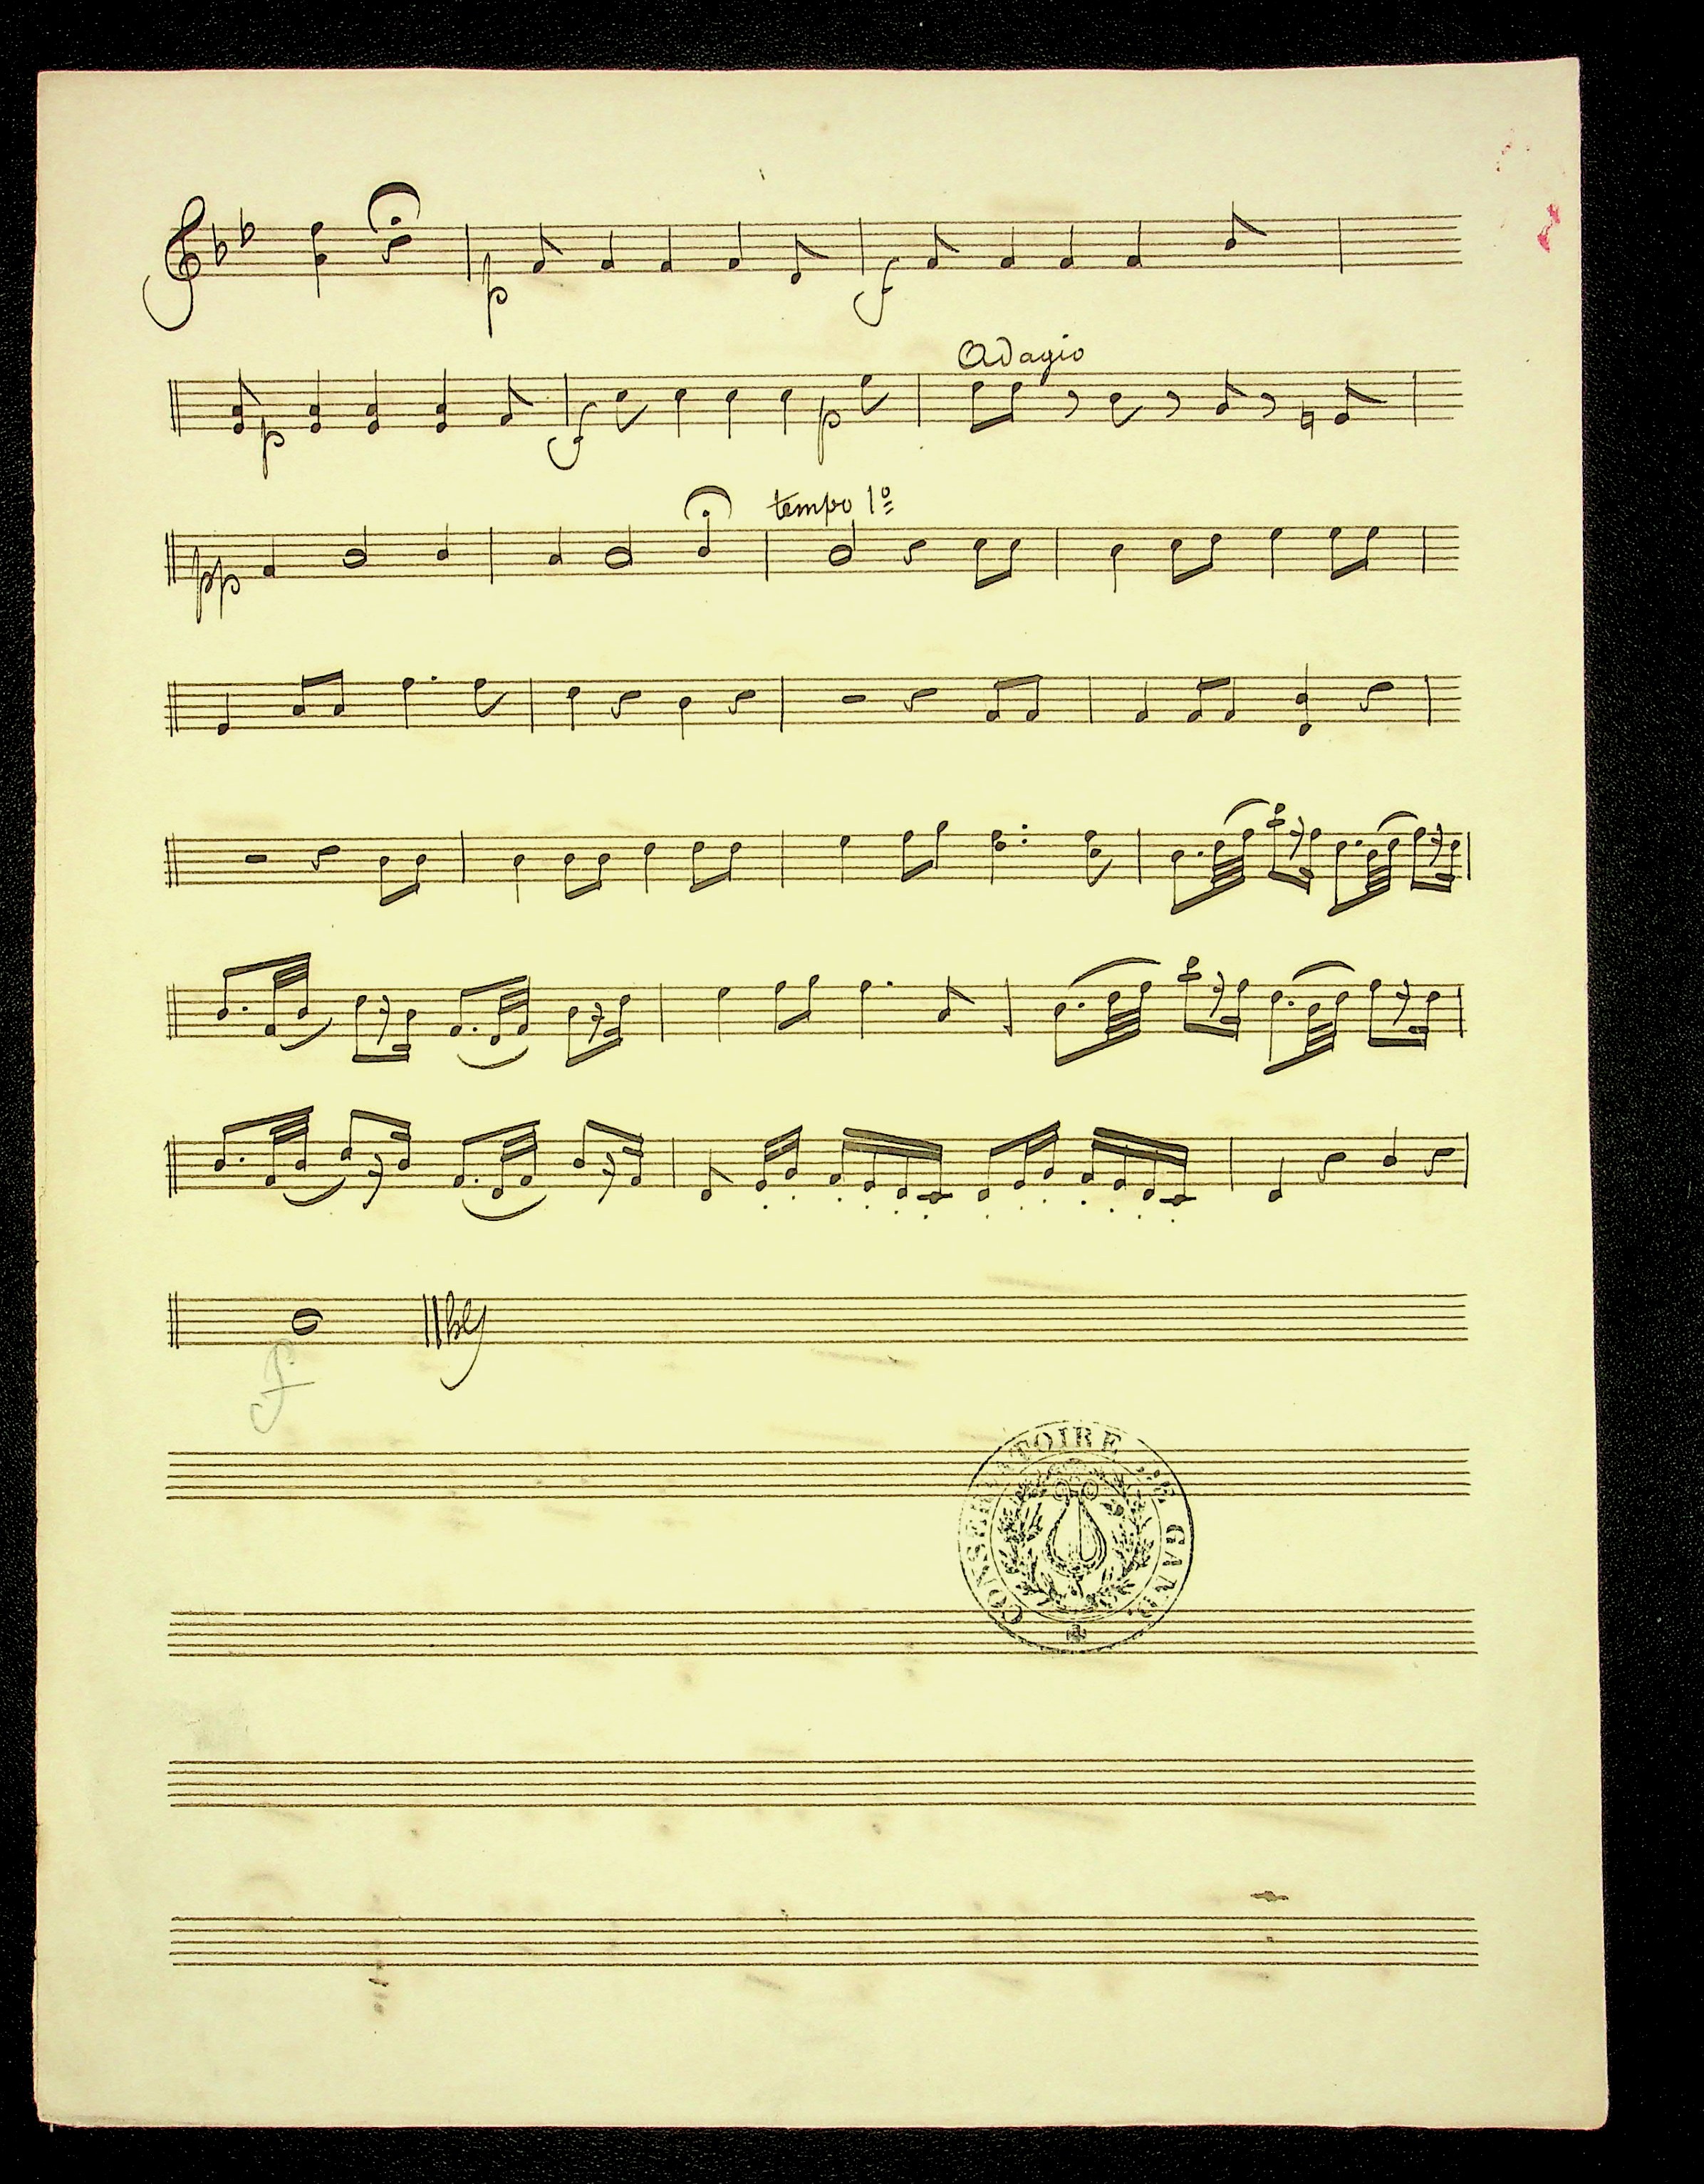 p f
p f p Adagio
pp tempo 1º
f
CONSERVATOIRE DE GAND